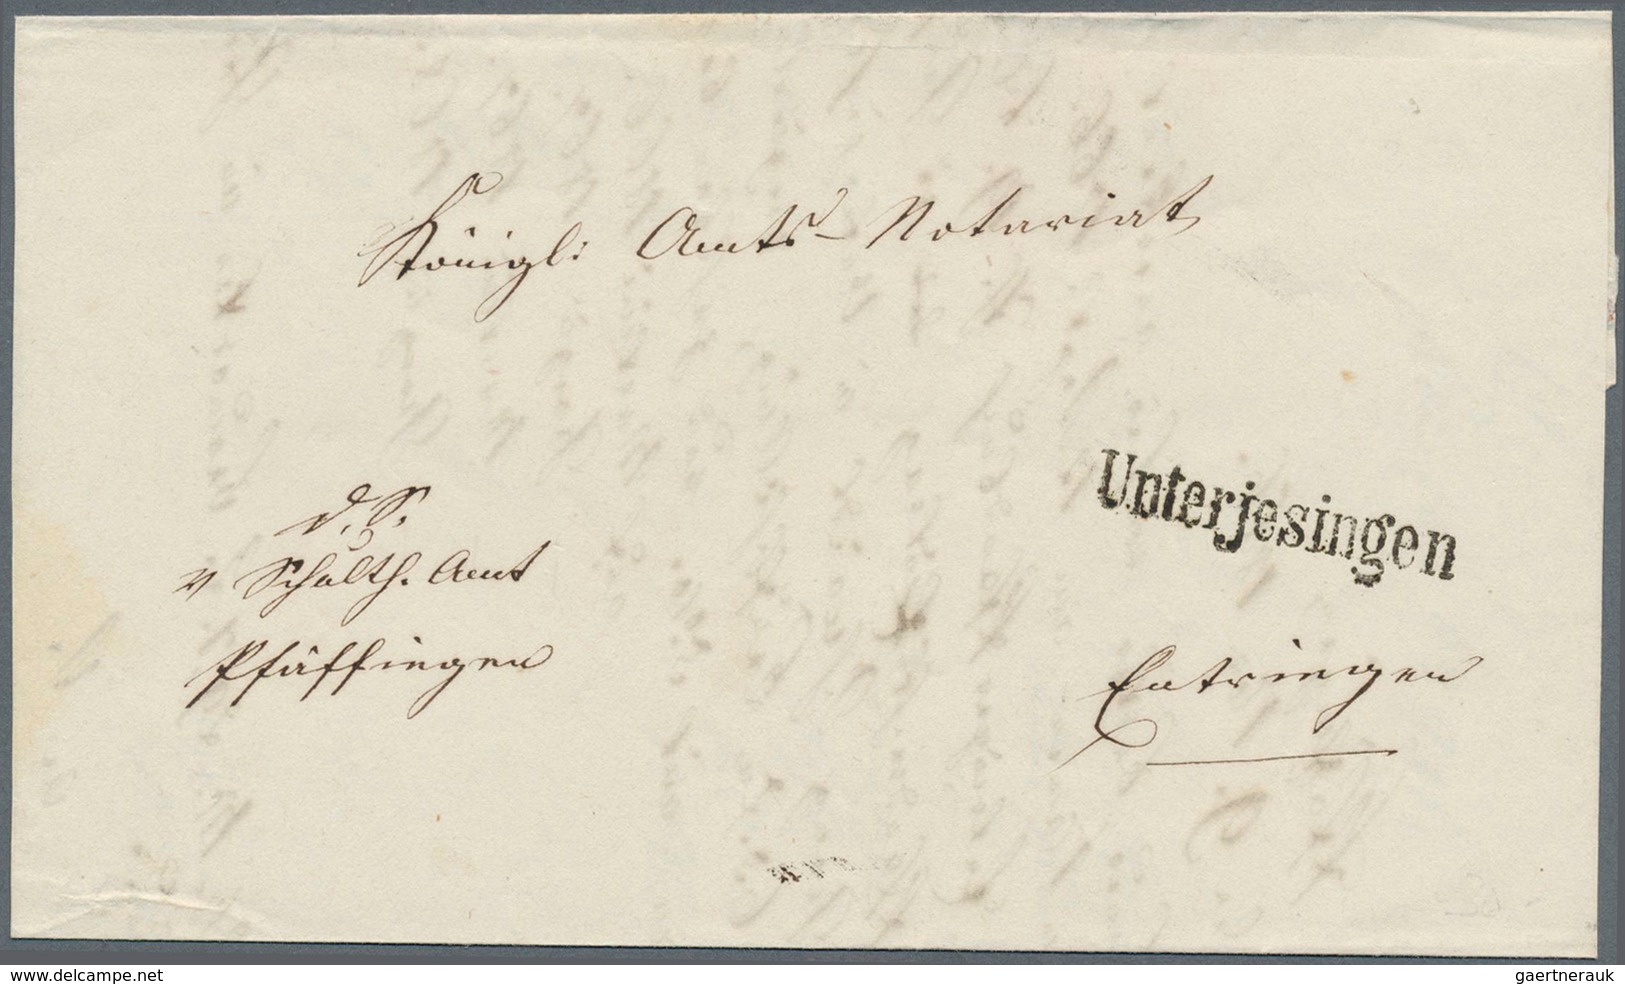 Königl: Amts-Notariat
Unterjesingen
d. S.
v Schulth. Amt
Pfäffingen
Entringen
www.delcampe.net
gaertnerauk